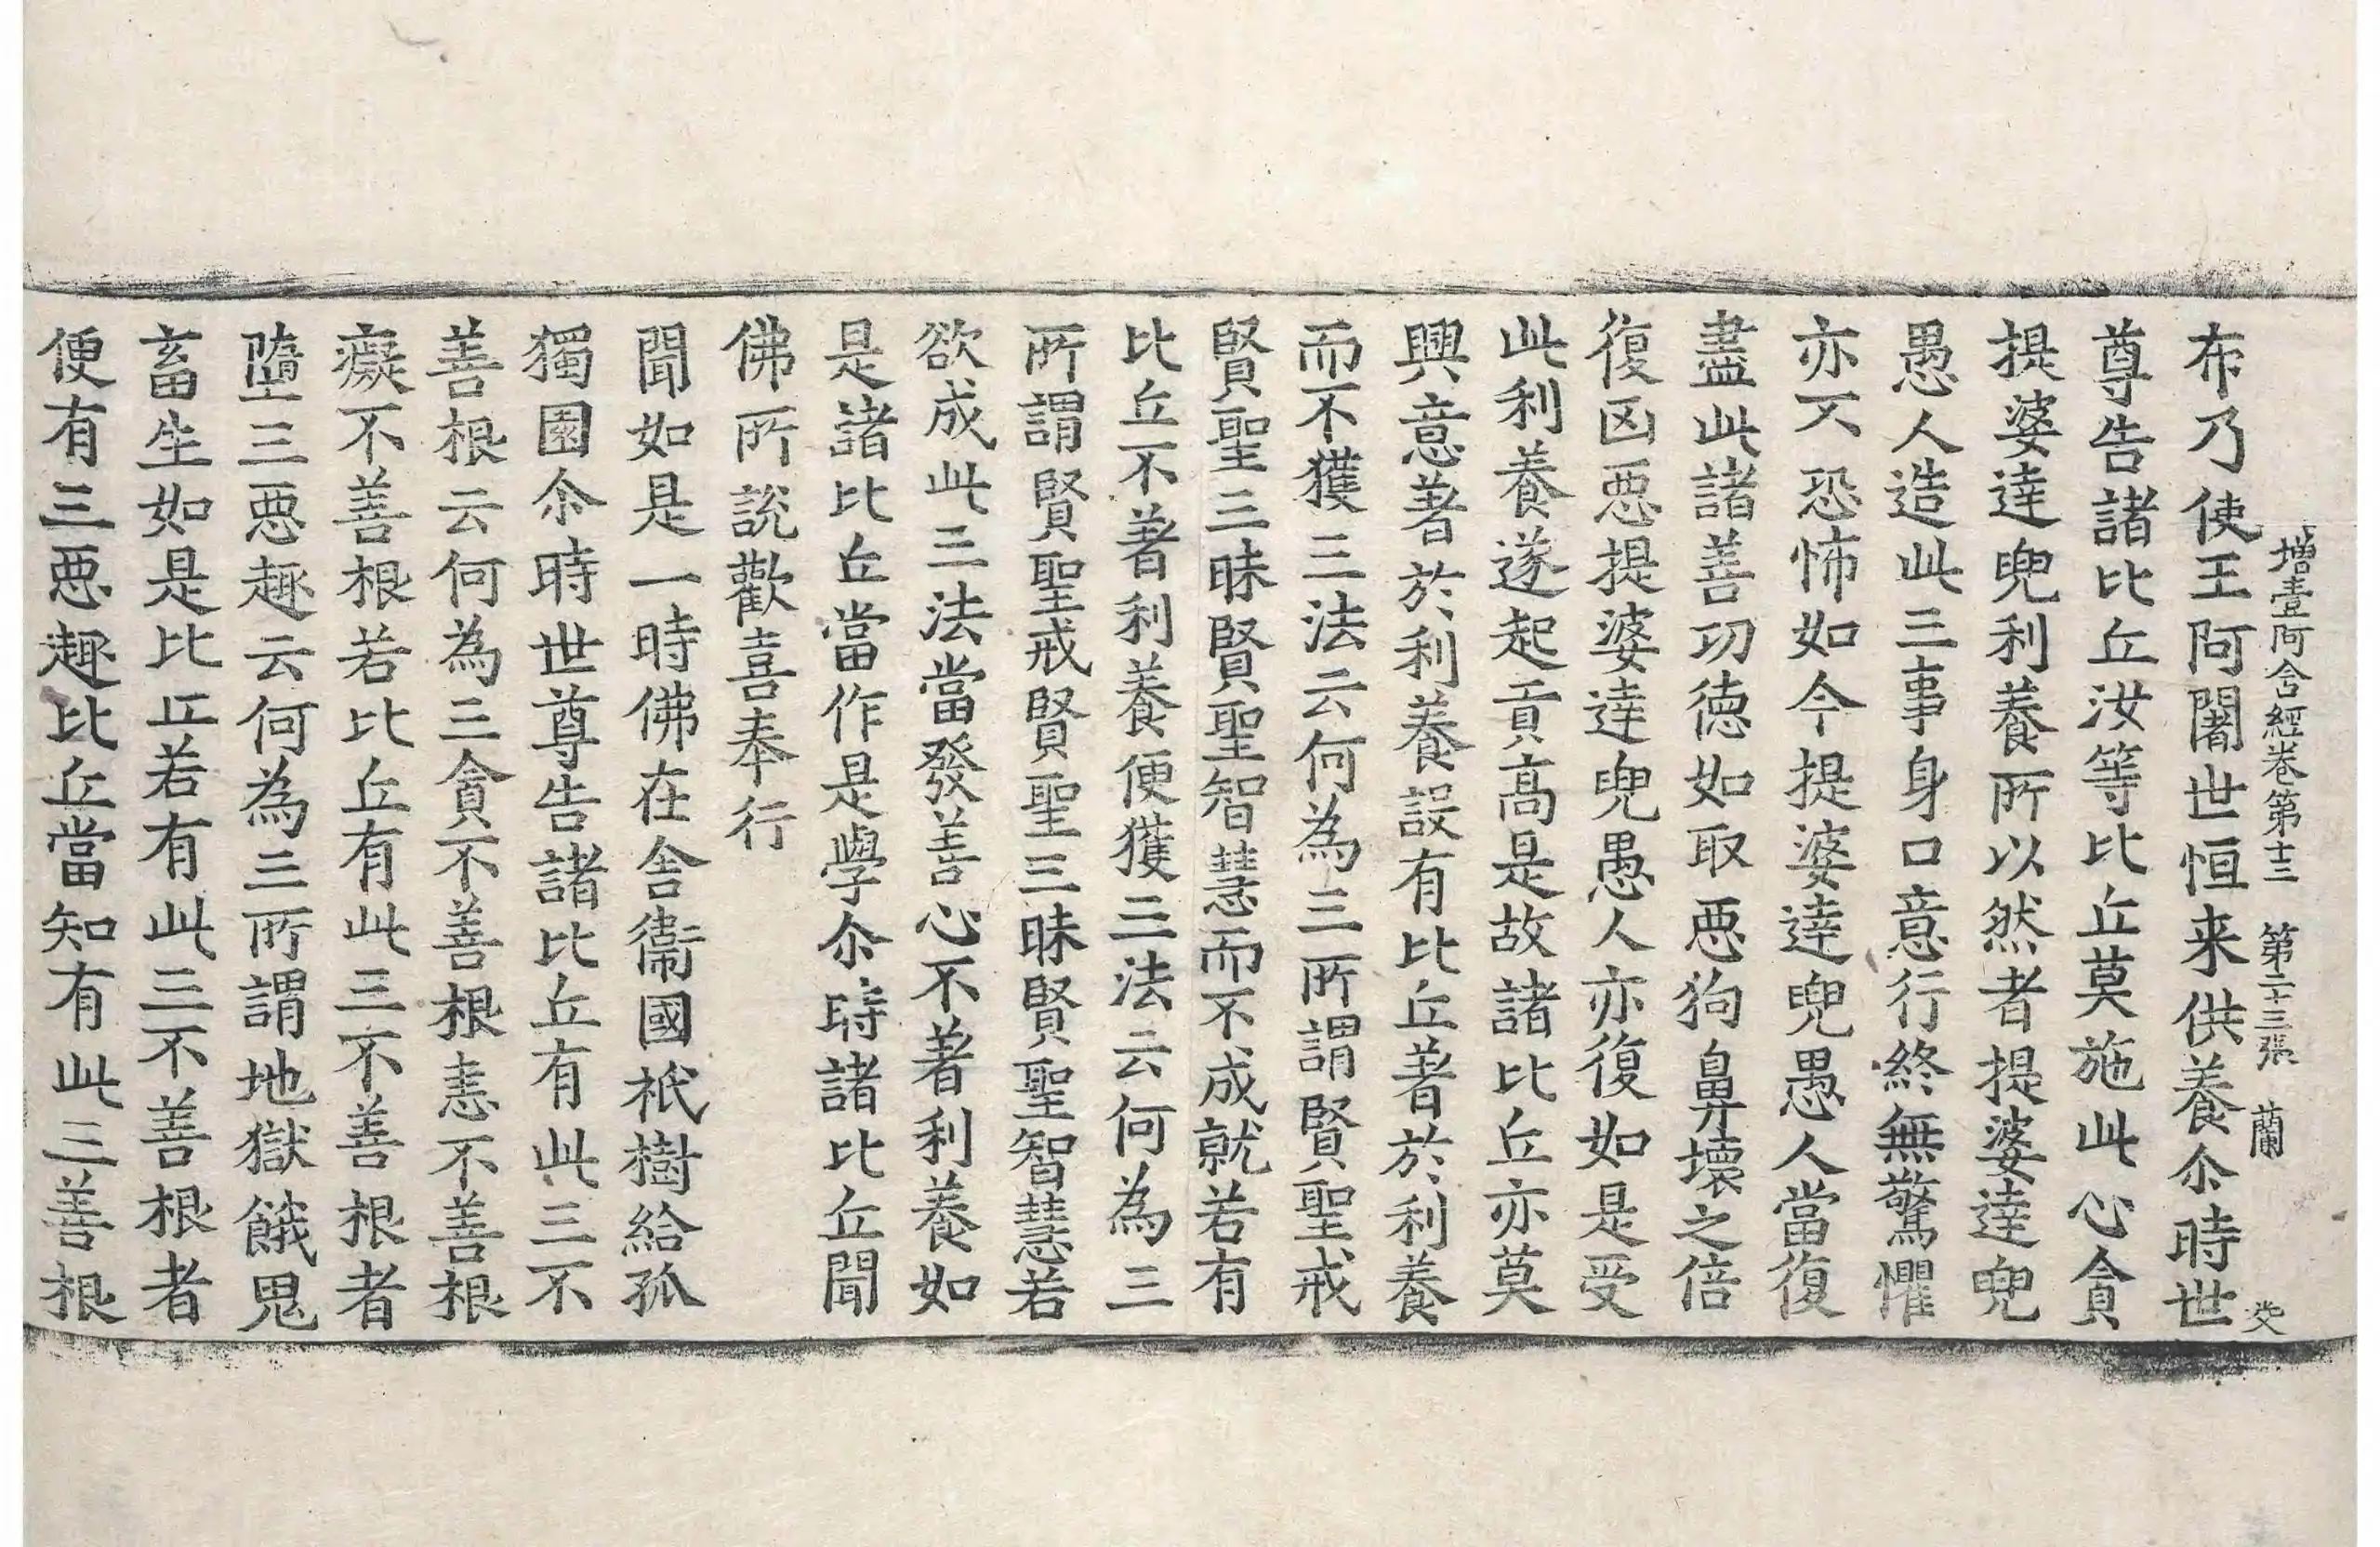 増壹阿含經卷第十三 第二十三張 蘭
布乃使王阿闍世恒来供養尒時世
尊告諸比丘汝等比丘莫施此心貪
提婆達兜利養所以然者提婆達兜
愚人造此三事身口意行終無驚懼
亦不恐怖如今提婆達兜愚人當復
盡此諸善功徳如取惡狗鼻壞之倍
復凶惡提婆達兜愚人亦復如是受
此利養遂起貢高是故諸比丘亦莫
興意著於利養設有比丘著於利養
而不獲三法云何為三所謂賢聖戒
賢聖三昧賢聖智慧而不成就若有
比丘不著利養便獲三法云何為三
所謂賢聖戒賢聖三昧賢聖智慧若
欲成此三法當發善心不著利養如
是諸比丘當作是學尒時諸比丘聞
佛所說歡喜奉行
聞如是一時佛在舎衞國祇樹給孤
獨園尒時世尊告諸比丘有此三不
善根云何為三貪不善根恚不善根
癡不善根若比丘有此三不善根者
墮三惡趣云何為三所謂地獄餓鬼
畜生如是比丘若有此三不善根者
便有三惡趣比丘當知有此三善根